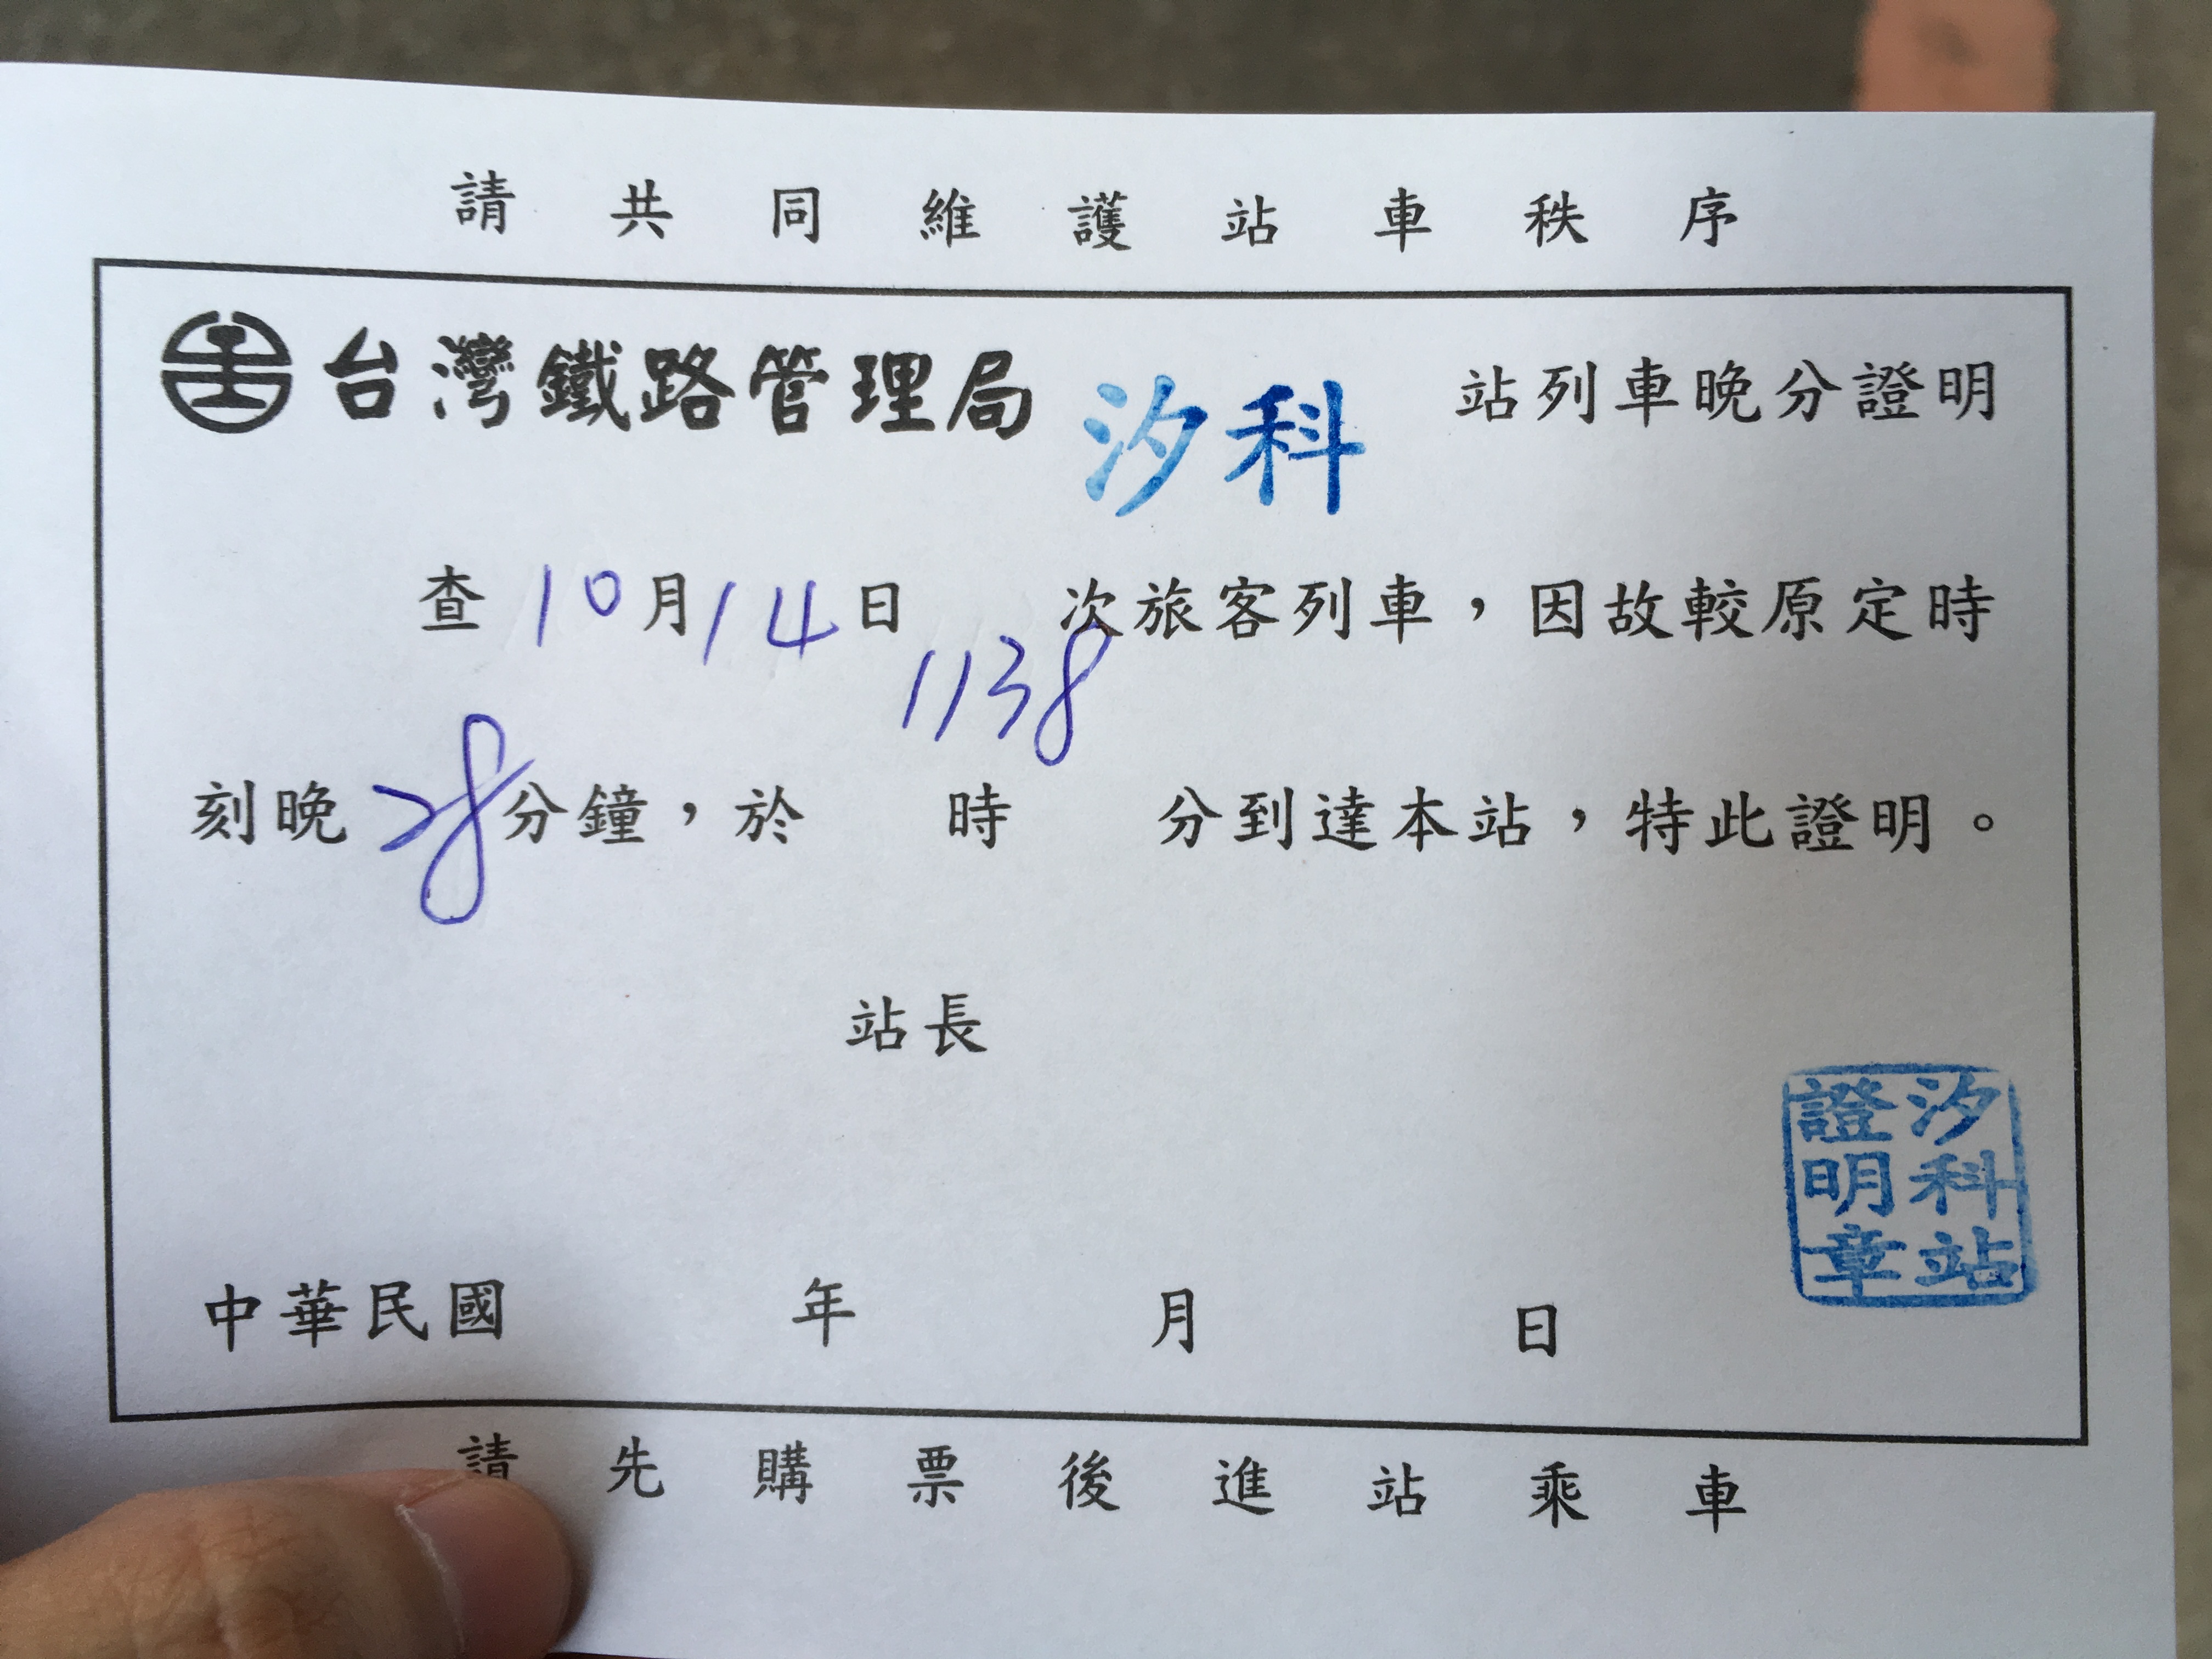 請共同維護站車秩序
台灣鐵路管理局 汐科 站列車晚分證明
查10月14日 1138次旅客列車，因故較原定時
刻晚28分鐘，於 時 分到達本站，特此證明。
站長
中華民國 年 月 日
汐科站
證明章
請先購票後進站乘車